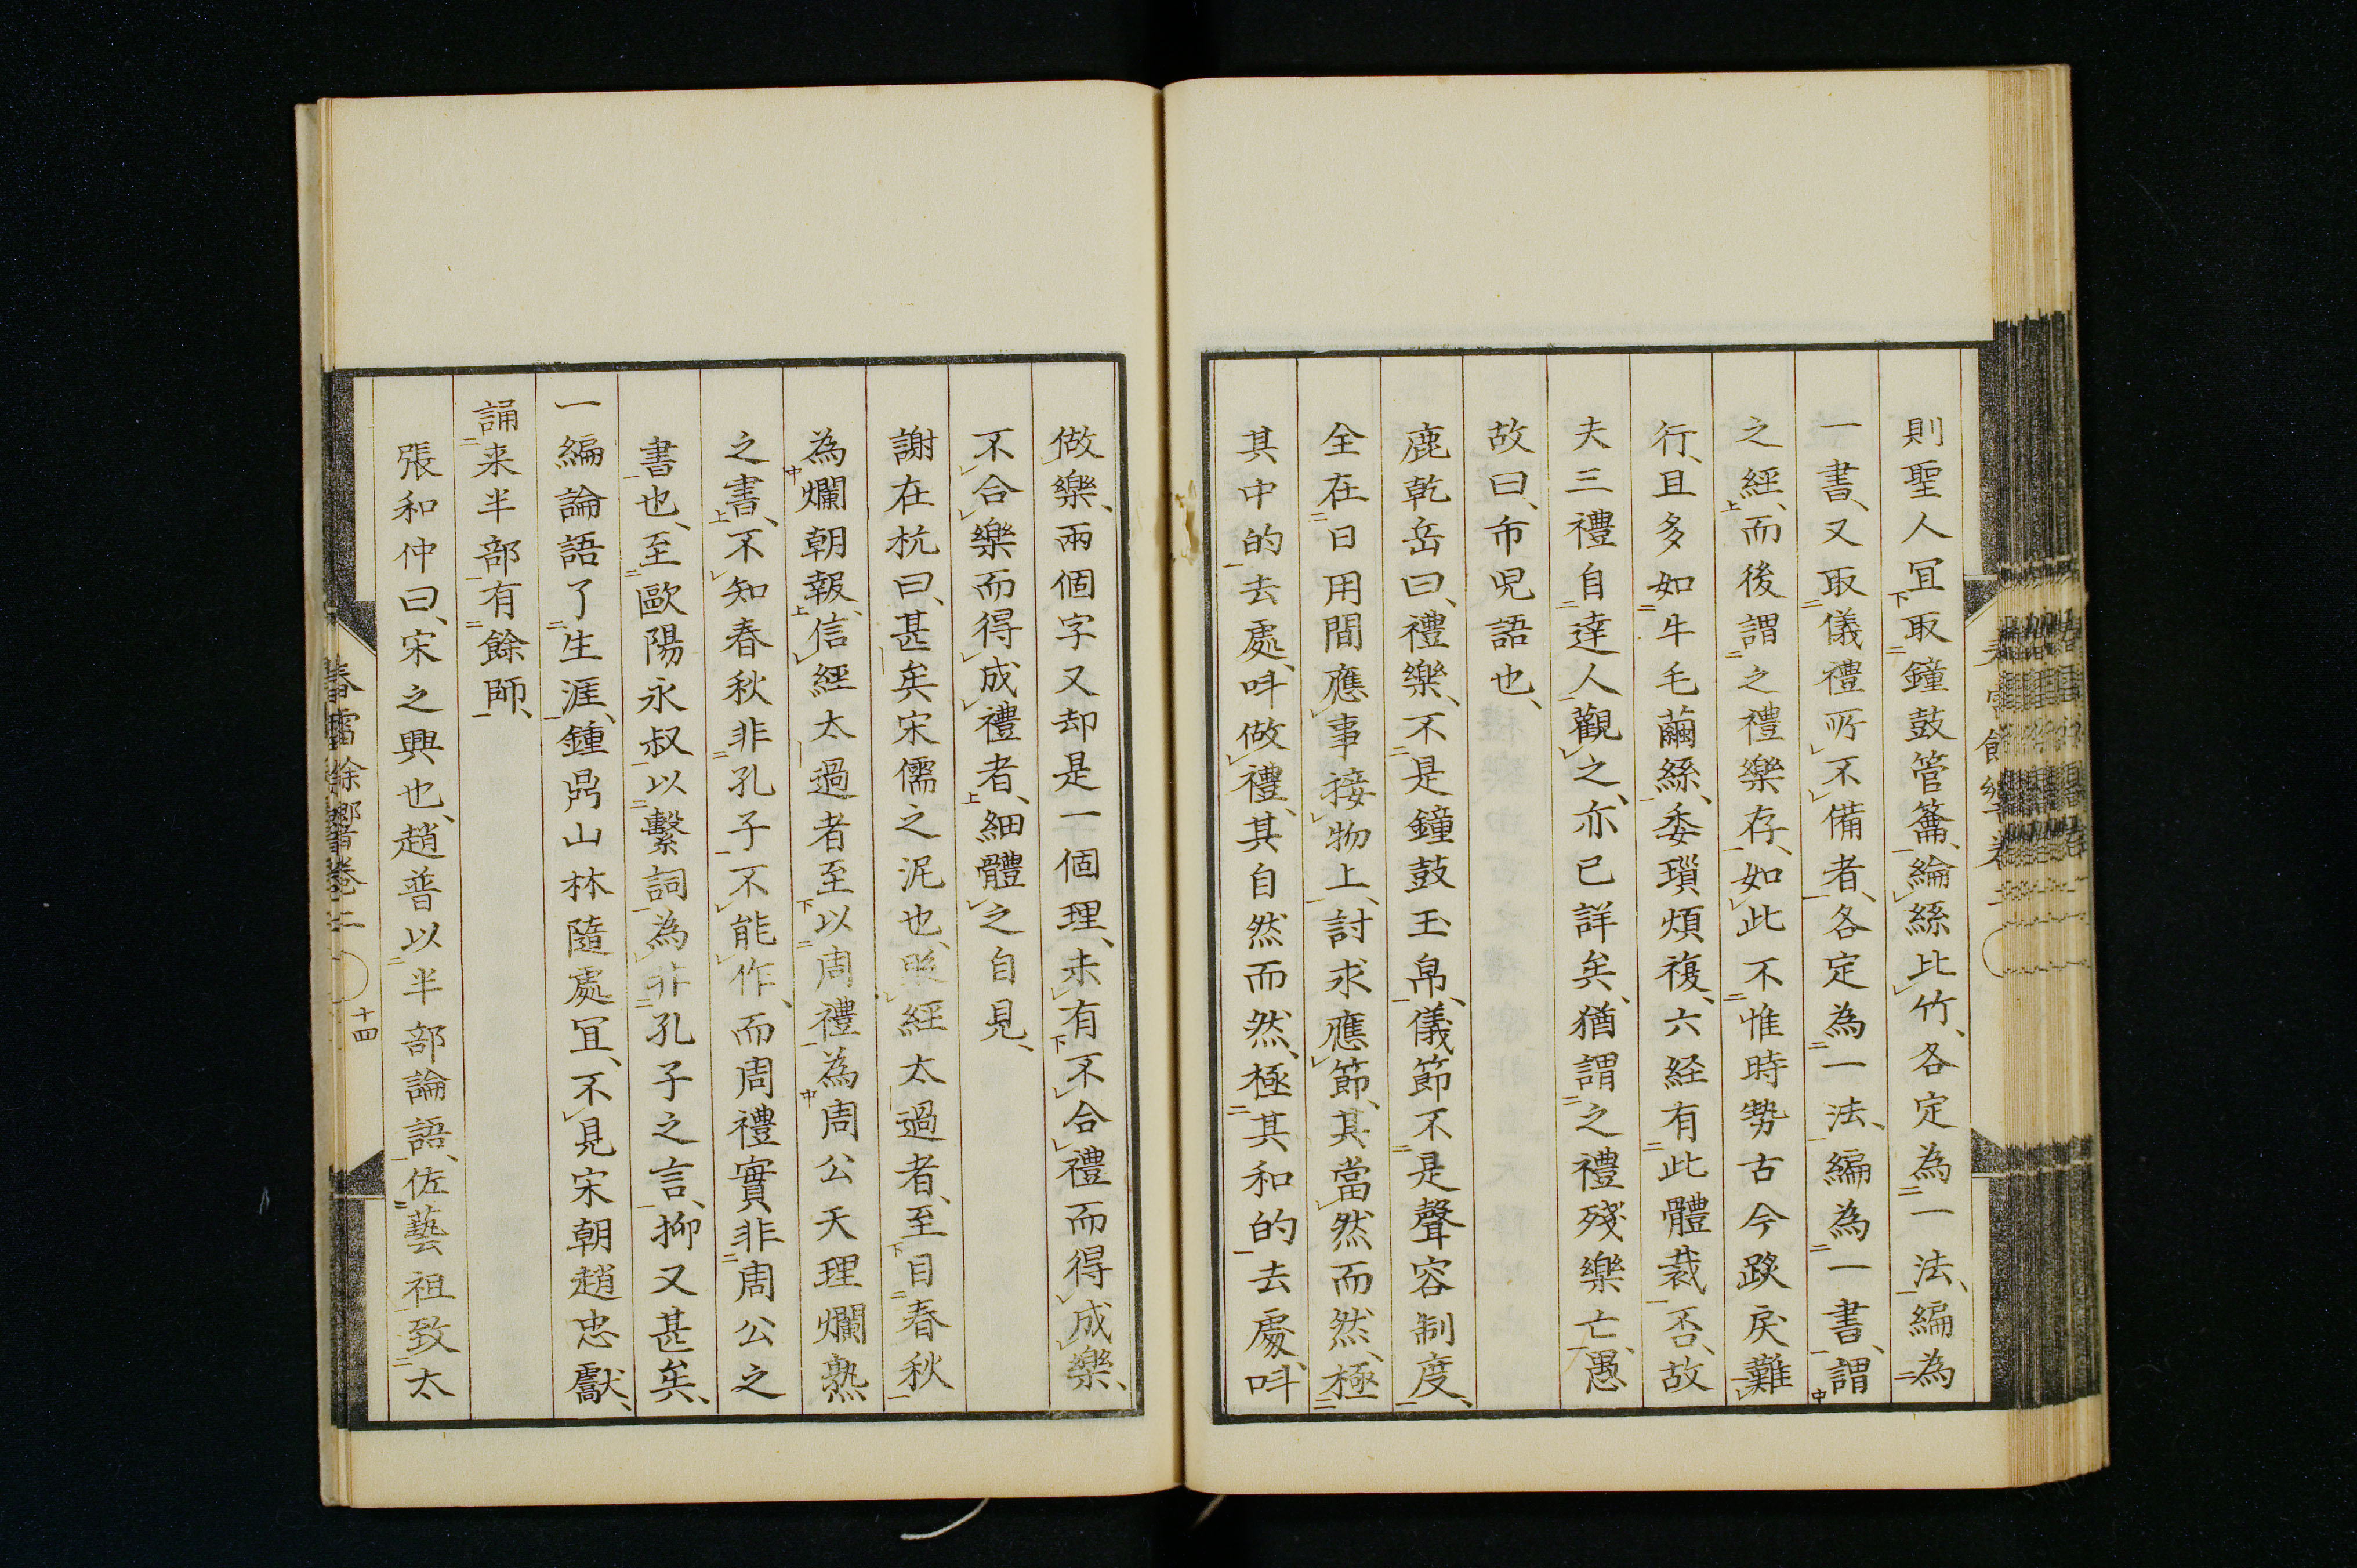 則聖人冝取鐘鼓管籥、綸絲比竹、各定為一法、編為
一書、又取儀禮所不備者、各定為一法、編為一書、謂
之經、而後謂之禮樂存、如此不惟時勢古今𨂍戾難
行、且多如牛毛繭絲、委瑣煩複、六経有此體裁否、故
夫三禮自達人觀之、亦已詳矣、猶謂之禮殘樂亡、愚
故曰、市児語也、
鹿乾岳曰、禮樂、不是鐘鼓玉帛、儀節不是聲容制度、
全在日用間應事接物上、討求應節、其當然而然、極
其中的去處、呌做禮、其自然而然、極其和的去處、呌
做樂、兩個字又却是一個理、未有不合禮而得成樂、
不合樂而得成禮者、細體之自見、
謝在杭曰、甚矣宋儒之泥也、貶經太過者、至目春秋
為爛朝報、信經太過者至以周禮為周公天理爛熟
之書、不知春秋非孔子不能作、而周禮實非周公之
書也、至歐陽永叔以繫詞為非孔子之言、抑又甚矣、
一編論語了生涯、鍾鼎山林隨處冝、不見宋朝趙忠獻、
誦来半部有餘師、
張和仲曰、宋之興也、趙普以半部論語、佐藝祖致太
春雷餘響卷二
十四